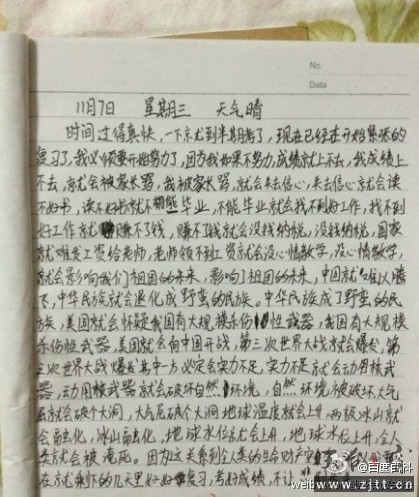 No.
Data
11月7日 星期三 天气晴
时间过得真快,一下就到半期考了,现在已经在开始紧张的
复习了,我必须要开始努力了,因为我如果不努力,成绩就上不去,我成绩上
不去,就会被家长骂,我被家长骂,就会失去信心,失去信心就会读
不好书,读不好书就不能毕业,不能毕业就会找不到好工作,找不到
好工作就赚不了钱,赚不了钱就会没钱纳税,没钱纳税,国家
就难发工资给老师,老师领不到工资就会没心情教学,没心情教学,
就会影响我们祖国的未来,影响了祖国的未来,中国就难以腾
飞,中华民族就会退化成野蛮的民族。中华民族成了野蛮的民
族,美国就会怀疑我国有大规模杀伤性武器,我国有大规模
杀伤性武器,美国就会向中国开战,第三次世界大战就会爆发,第
三次世界大战爆发其中一方必定会实力不足,实力不足就会动用核武
器,动用核武器就会破坏自然环境,自然环境被破坏,大气
层就会破个大洞,大气层破个大洞地球温度就会上升,两极冰山就
会融化,冰山融化,地球水位就会上升,地球水位上升,全人
类就会被淹死。因为这关系到全人类的生命财产
在就剩下的几天里好好复习,考好成绩,不让
@百度贴吧
www.zjtt.cn